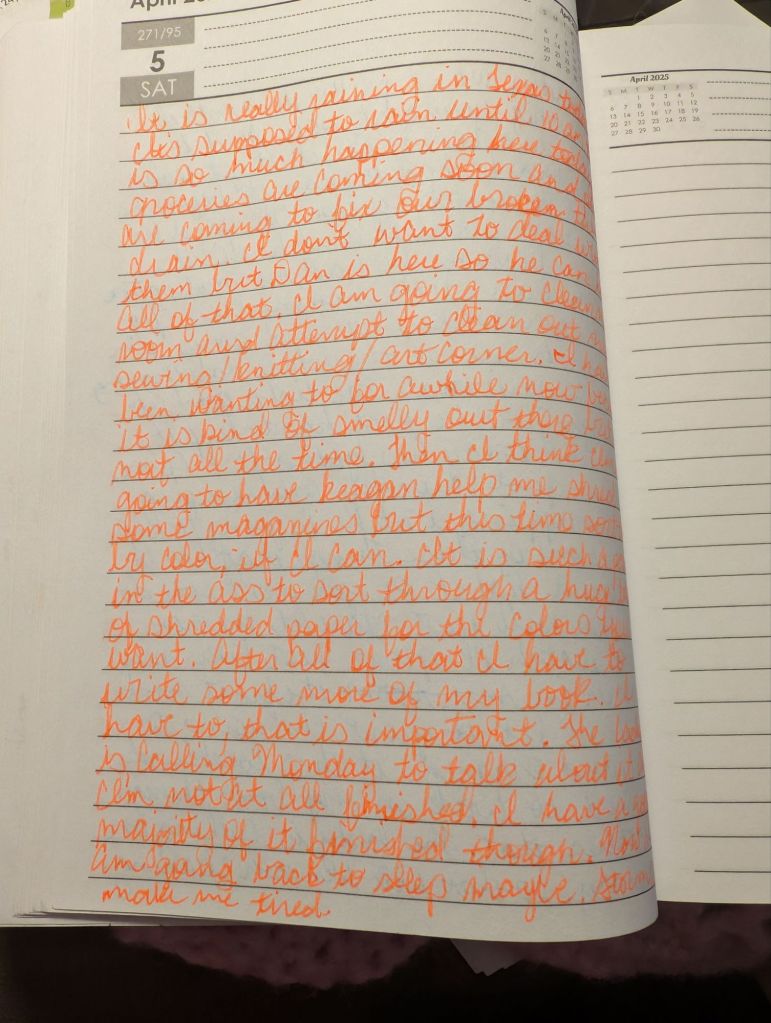 April 20
271/95
5
SAT
It is really raining in Texas
It's supposed to rain until 10 am
is so much happening here
groceries are coming soon and
are coming to fix our broken
drain. I don't want to deal
them but Dan is here so he can
all of that. I am going to clean
room and attempt to clean out
sewing/knitting/art corner. I
been wanting to for awhile now
it is kind of smelly out there
not all the time. Then I think
going to have Keagan help me shred
some maganines but this time
by color, if I can. It is such
in the ass to sort through a huge
of shredded paper for the colors
want. After all of that I have to
write some more of my book. I
have to, that is important. The
is calling Monday to talk about it
I'm not at all finished. I have a
majority of it finished though.
am going back to sleep maybe.
make me tired.
April 2025
S M T W T F S
1 2 3 4 5
6 7 8 9 10 11 12
13 14 15 16 17 18 19
20 21 22 23 24 25 26
27 28 29 30